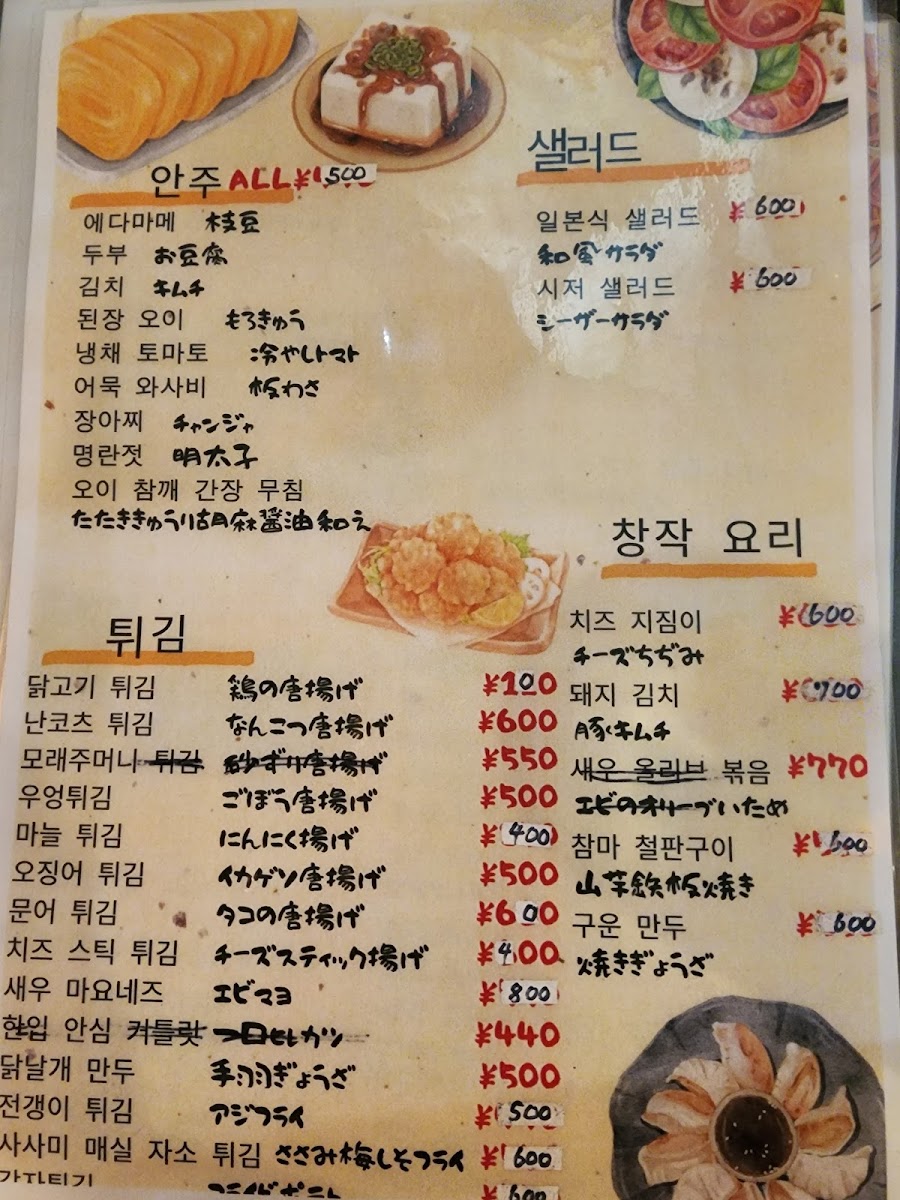 안주 ALL ¥500
에다마메 枝豆
두부 お豆腐
김치 キムチ
된장 오이 もろきゅう
냉채 토마토 冷やしトマト
어묵 와사비 板わさ
장아찌 チャンジャ
명란젓 明太子
오이 참깨 간장 무침
たたききゅうり胡麻醤油和え
샐러드
일본식 샐러드 ¥600
和風サラダ
시저 샐러드 ¥600
シーザーサラダ
튀김
닭고기 튀김 鶏の唐揚げ ¥100
난코츠 튀김 なんこつ唐揚げ ¥600
모래주머니 튀김 砂ずり唐揚げ ¥550
우엉튀김 ごぼう唐揚げ ¥500
마늘 튀김 にんにく揚げ ¥400
오징어 튀김 イカゲソ唐揚げ ¥500
문어 튀김 タコの唐揚げ ¥600
치즈 스틱 튀김 チーズスティック揚げ ¥400
새우 마요네즈 エビマヨ ¥800
한입 안심 커틀릿 一口ヒレカツ ¥440
닭날개 만두 手羽ぎょうざ ¥500
전갱이 튀김 アジフライ ¥500
사사미 매실 자소 튀김 ささみ梅しそフライ ¥600
フライドポテト ¥600
창작 요리
치즈 지짐이 ¥600
チーズちぢみ
돼지 김치 ¥700
豚キムチ
새우 올리브 볶음 ¥770
エビのオリーブいため
참마 철판구이 ¥600
山芋鉄板焼き
구운 만두 ¥600
焼きぎょうざ